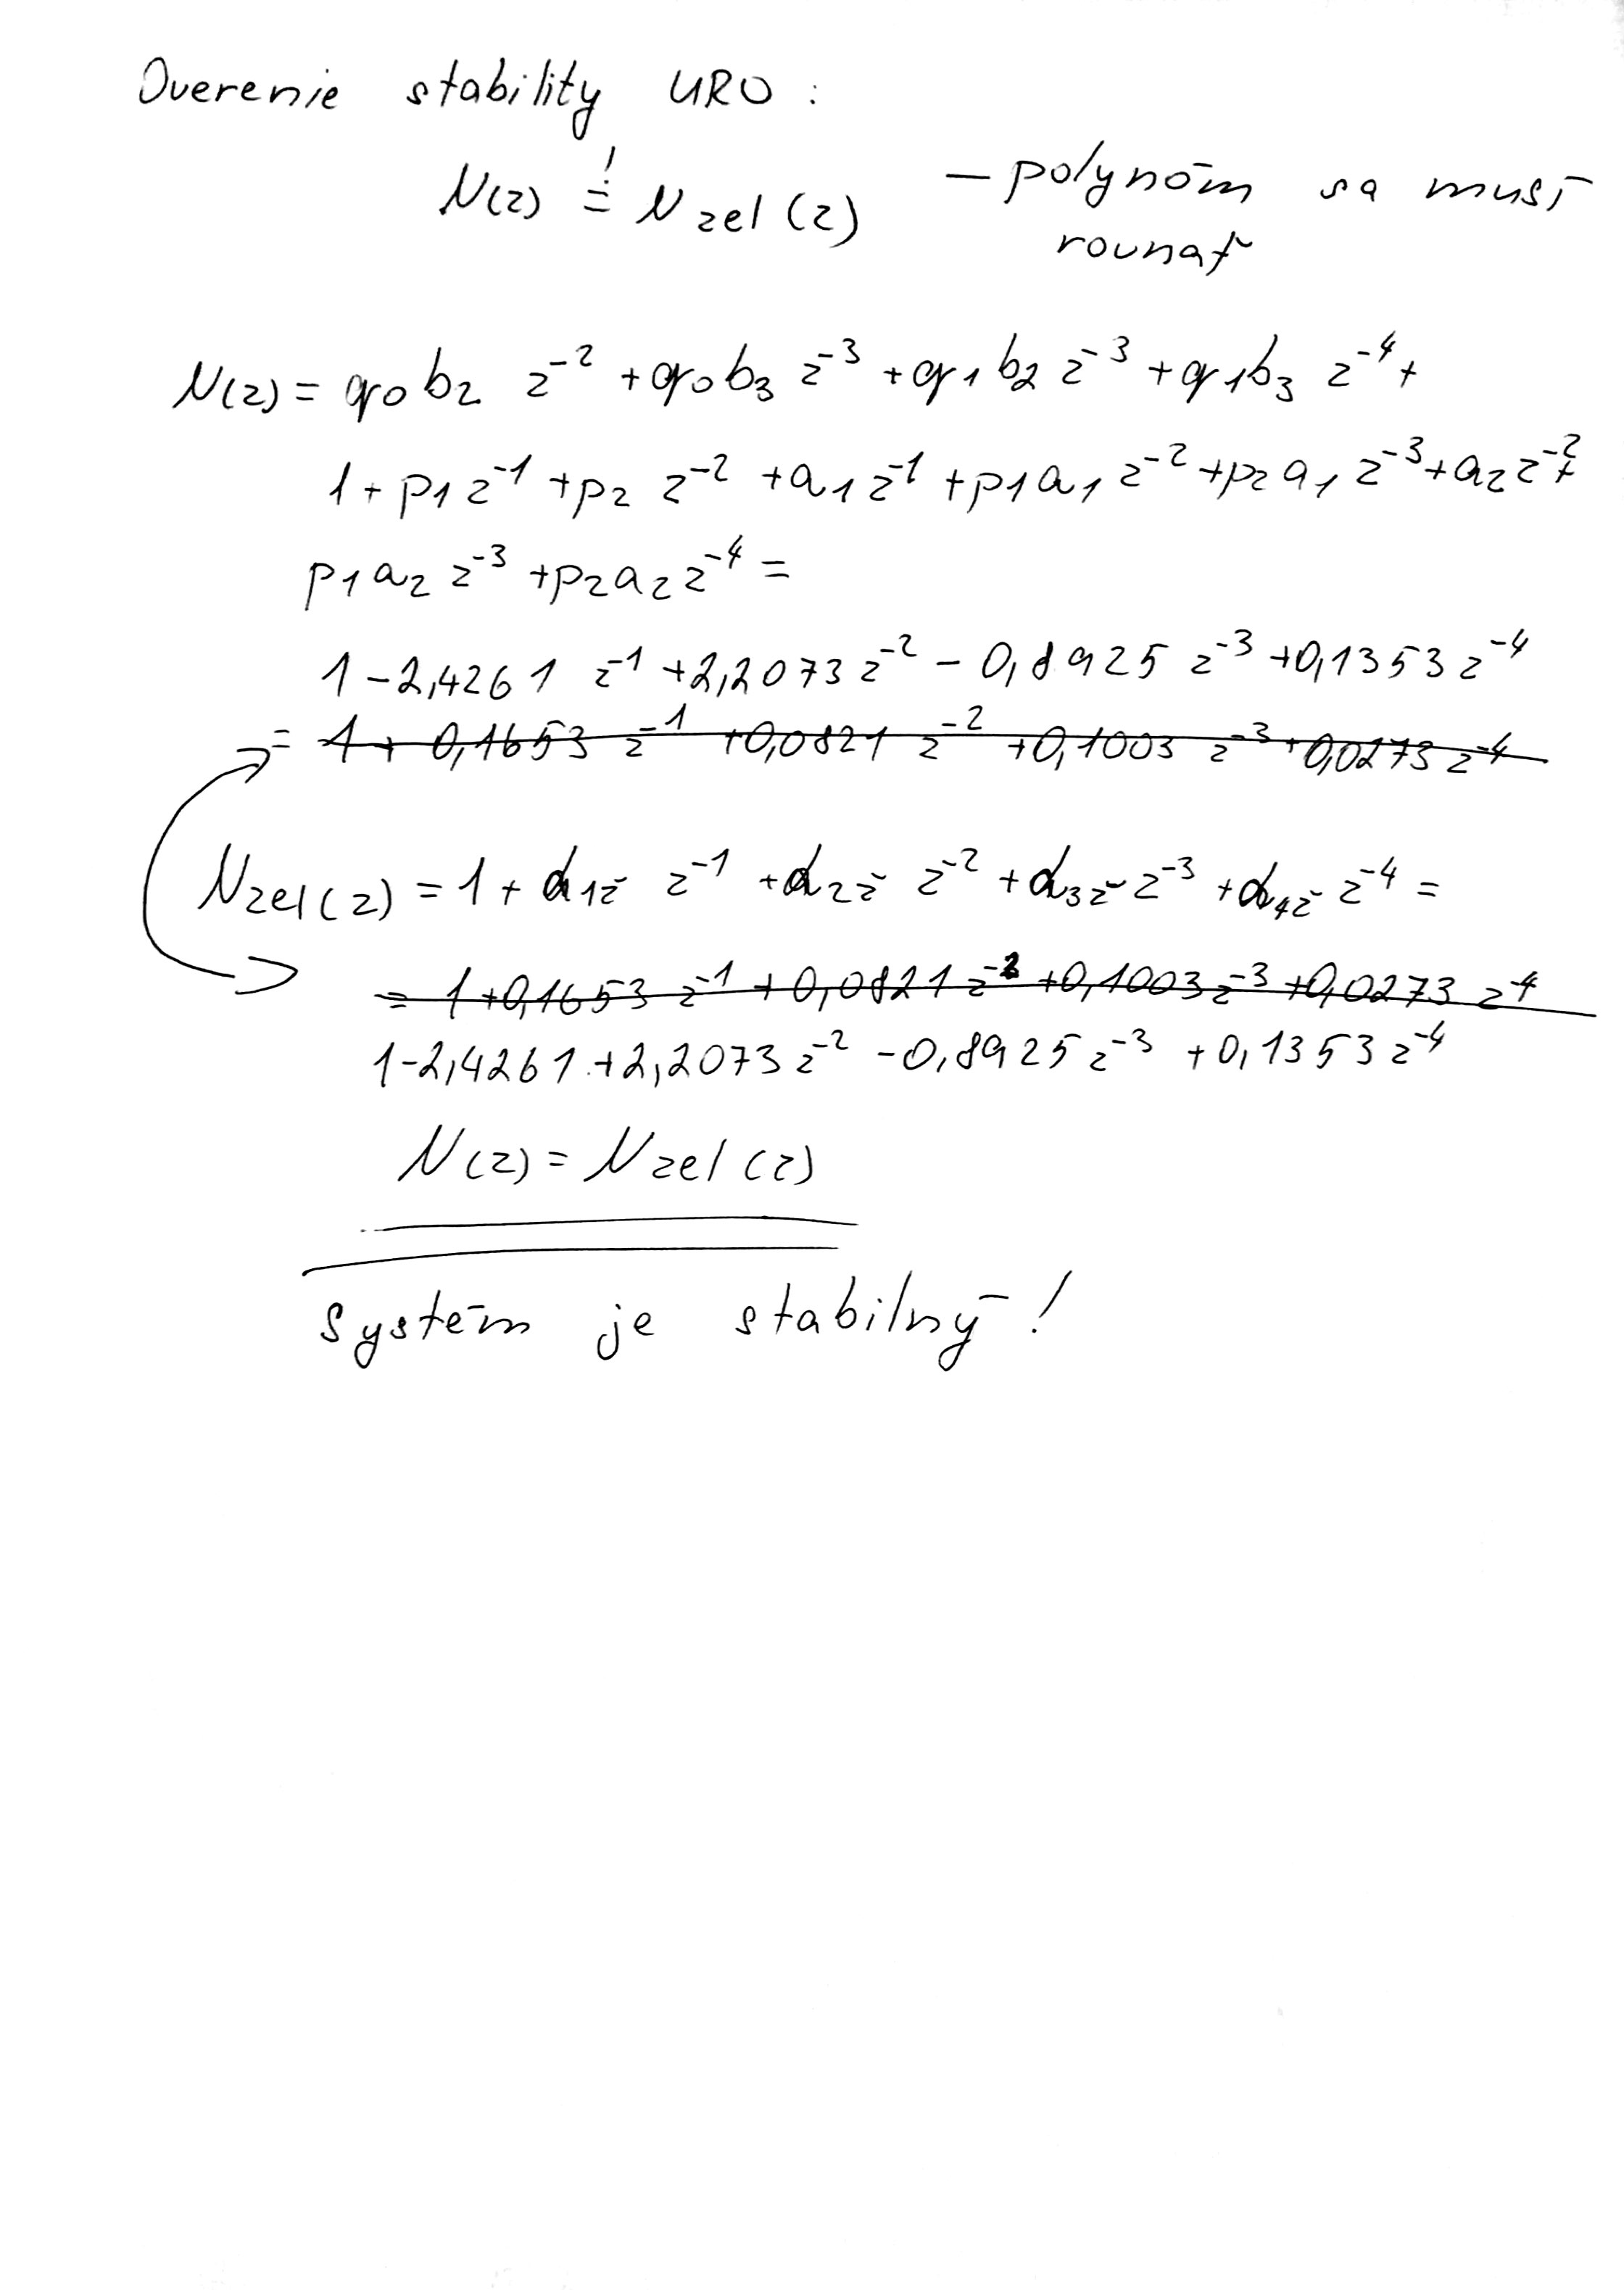 Overenie stability URO :
N(z) =! Nzel (z) – polynóm sa musí
rovnať
N(z) = q0 b2 z^-2 + q0 b3 z^-3 + q1 b2 z^-3 + q1 b3 z^-4 +
1 + p1 z^-1 + p2 z^-2 + a1 z^-1 + p1 a1 z^-2 + p2 a1 z^-3 + a2 z^-2 +
p1 a2 z^-3 + p2 a2 z^-4 =
1 - 2,4261 z^-1 + 2,2073 z^-2 - 0,8925 z^-3 + 0,1353 z^-4
= 1 + 0,1653 z^-1 + 0,0821 z^-2 + 0,1003 z^-3 + 0,0273 z^-4
Nzel (z) = 1 + α1ž z^-1 + α2ž z^-2 + α3ž z^-3 + α4ž z^-4 =
= 1 + 0,1653 z^-1 + 0,0821 z^-2 + 0,1003 z^-3 + 0,0273 z^-4
1 - 2,4261 + 2,2073 z^-2 - 0,8925 z^-3 + 0,1353 z^-4
N(z) = Nzel (z)
systém je stabilný !